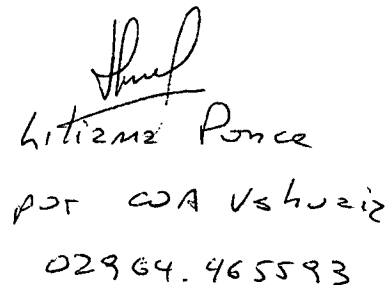 Litiana Ponce
por COA Ushuaia
02964.465593